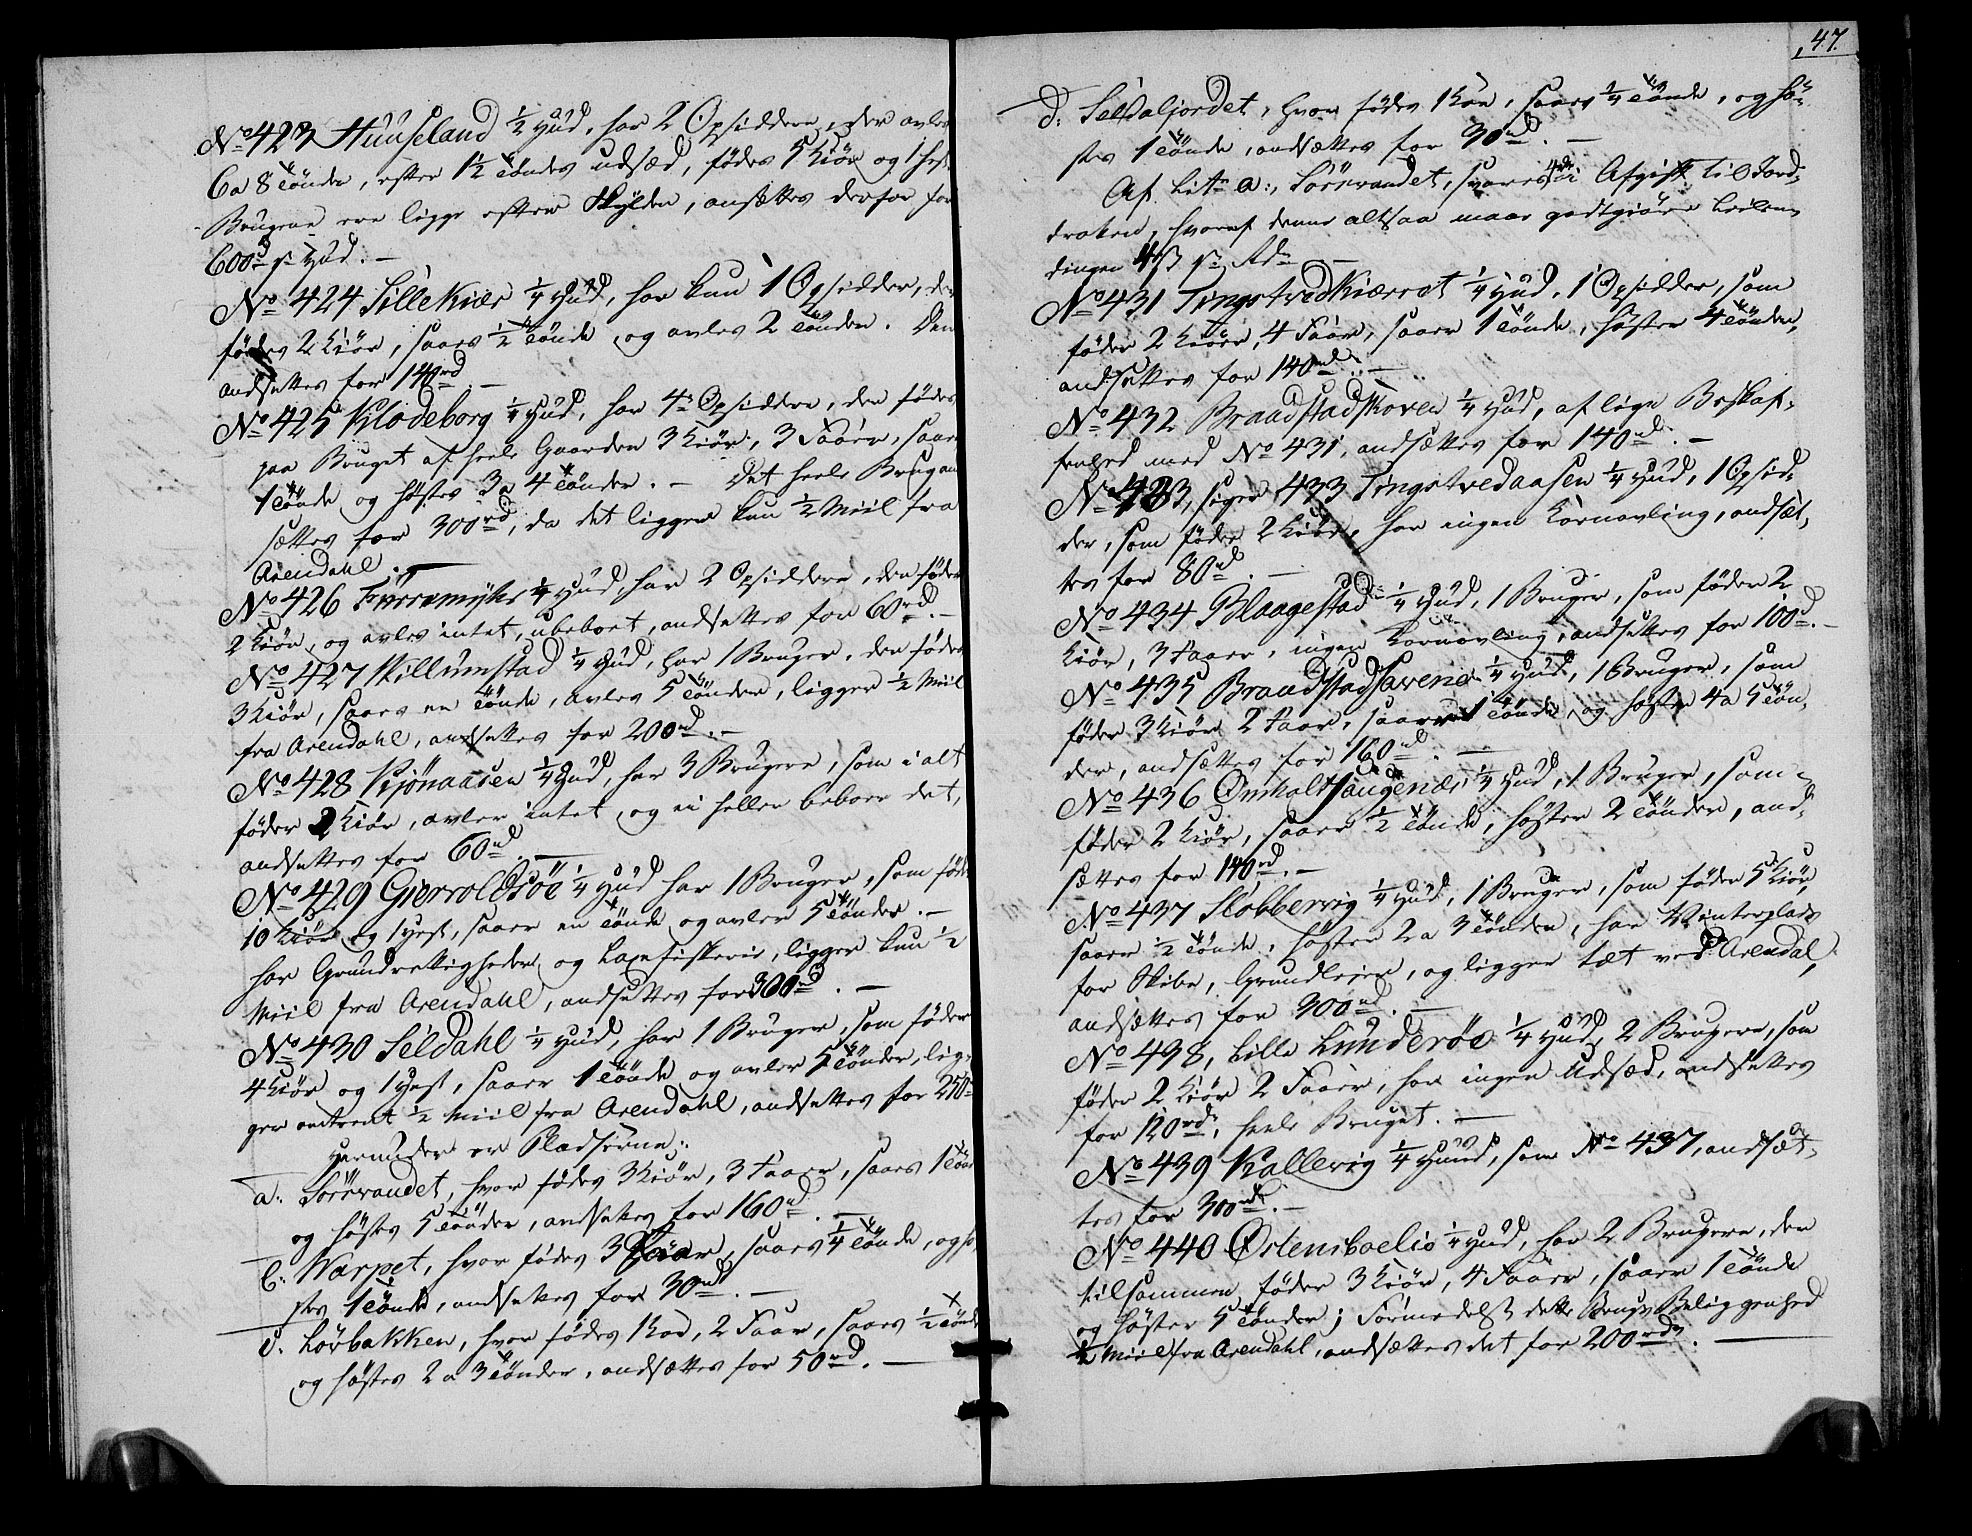 No 423 Huuseland 1/2 Hud, har 2 Opsiddere, der avles
6 a 8 Tönder, efter 1 1/2 Töndes udsæd, födes 5 Kiör og 1 Hest
Brugene ere ligge efter Skylden, ansættes derfor for
600rd pr Hud. –
No 424 Sillekiær 1/4 Hud, har kun 1 Opsidder, der
födes 2 Kiör, saaes 1/2 Tönde og avles 2 Tönder. Den
andsættes for 140rd. –
No 425 Klodeborg 1/4 Hud, har 4 Opsiddere, der födes
paa Bruget af heele Gaarden 3 Kiör, 3 Faaer, saaes
1 Tönde og höstes 3 a 4 Tönder. – Det heele Brug an
sættes for 300rd, da det ligger kun 1/2 Miil fra
Arendahl. –
No 426 Furremyhr 1/4 Hud, har 2 Opsiddere, der föder
2 Kiör, og avles intet, ubeboet, andsættes for 60rd. –
No 427 Willumstad 1/4 Hud, har 1 Bruger, der födes
3 Kiör, saaes en Tönde, avles 5 Tönder, ligger 1/2 Miil
fra Arendahl, andsættes for 200rd. –
No 428 Kjönaasen 1/4 Hud, har 3 Brugere, som i alt
föder 2 Kiör, avler intet, og ei heller beboer det,
andsættes for 60rd. –
No 429 Gierroldsöe 1/4 Hud har 1 Bruger, som föder
10 Kiör og 1 Hest, saaer en Tönde og avler 5 Tönder. –
har Grundrettigheder og Laxefiskerie, ligger kun 1/2
Miil fra Arendahl, andsættes for 300rd. –
No 430 Seldahl 1/4 Hud, har 1 Bruger, som föder
4 Kiör og 1 Hest, saaer 1 Tönde og avler 5 Tönder, lig-
ger omtrent 1/2 Miil fra Arendahl, andsættes for 250rd
Herunder er Pladserne:
a: Sörvandet, hvor födes 3 Kiör, 3 Faaer, saaes 1 Tönde
og höstes 5 Tönder, andsættes for 160rd. –
b: Warpet, hvor födes 3 Faaer, saaes 1/4 Tönde, og hö
stes 1 Tönde, andsættes for 30rd. –
c: Lörbakken, hvor födes 1 Koe, 2 Faar, saaes 1/2 Tönde
og höstes 2 a 3 Tönder, andsættes for 50rd. –
47.
d: Seldaljordet, hvor födes 1 Koe, saaes 1/4 Tönde, og hö-
stes 1 Tönde, andsættes for 30rd. –
Af Litr a:, Sörvandet, svares 4rd i Afgift til Jord-
drotten, hvoraf denne altsaa maae godtgiöre Leilæn-
dingen 4 ß pr Rdr –
No 431 Tingstvedkiærret 1/4 Hud, 1 Opsidder, som
föder 2 Kiör, 4 Faaer, saaer 1 Tönde, höster 4 Tönder,
andsættes for 140rd. –
No 432 Braadstadskoven 1/4 Hud, af lige Beskaf-
fenhed med No 431, andsættes for 140rd. –
No 423, siger 433 Tingstvedaasen 1/4 Hud, 1 Opsid-
der, som föder 2 Kiör, har ingen Kornavling, andsæt-
tes for 80rd. –
No 434 Blaagestad 1/4 Hud, 1 Bruger, som föder 2
Kiör, 3 Faaer, ingen Kornavling, andsættes for 100rd. –
No 435 Braadstad 1/4 Hud, 1 Bruger, som
föder 3 Kiör 2 Faar, saaer 1 Tönde, og höster 4 a 5 Tön-
der, andsættes for 160rd. –
No 436 1/4 Hud, 1 Bruger, som
föder 2 Kiör, saaer 1/2 Tönde, höster 2 Tönder, and-
sættes for 140rd. –
No 437 Slobbervig 1/4 Hud, 1 Bruger, som föder 5 Kiör
saaer 1/2 Tönde, höster 2 a 3 Tönder, har Vinterplads
for Skibe, Grundleier, og ligger tæt ved Arendal,
andsættes for 300rd. –
No 438, Lille Lunderöe 1/4 Hud, 2 Brugere, som
föder 2 Kiör 2 Faaer, har ingen Udsæd, andsættes
for 120rd, heele Bruget. –
No 439 Kallevig 1/4 Huud, som No 437, andsæt-
tes for 300rd. –
No 440 Östensboelio 1/4 Hud, har 2 Brugere, der
tilsammen föder 3 Kiör, 4 Faaer, saaer 1 Tönde
og höster 5 Tönder; Formedelst dette Brugs Beliggenhed
1/2 Miil fra Arendahl, andsættes det for 200rd. –